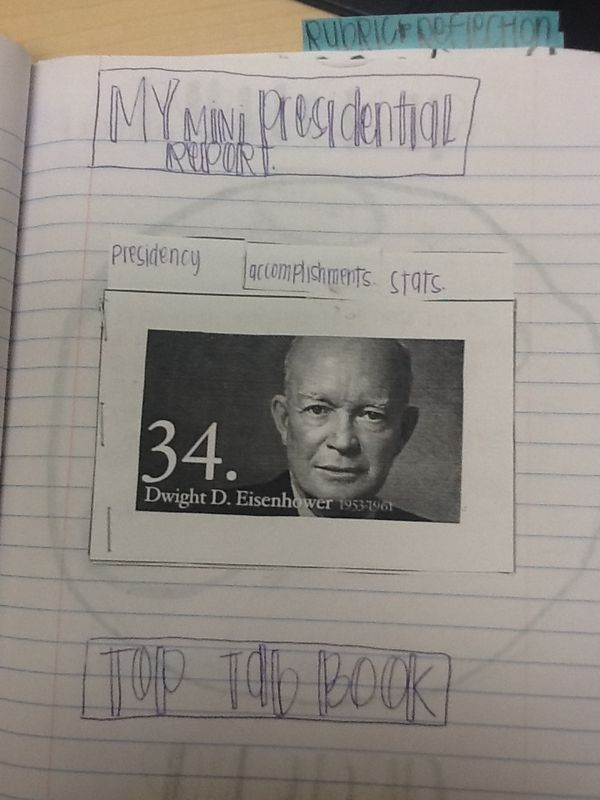 RUBRIC & REFLECTION
MY MINI PRESIDENTIAL
REPORT.
PRESIDENCY
ACCOMPLISHMENTS.
STATS.
34.
Dwight D. Eisenhower 1953-1961
TOP TAB BOOK